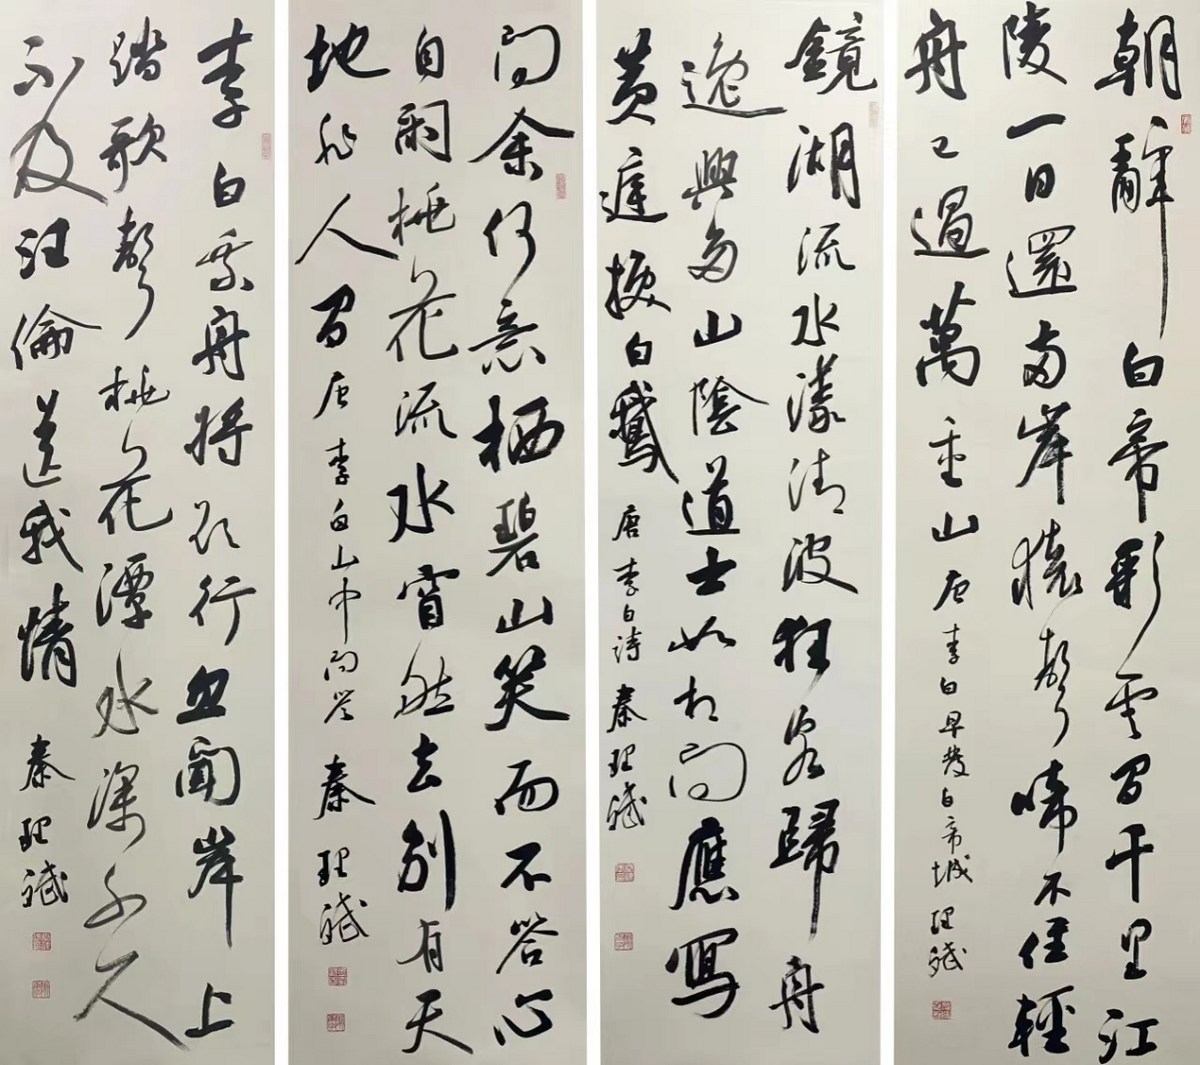 朝辭白帝彩雲間千里江
陵一日還兩岸猿聲啼不住輕
舟已過萬重山 唐李白早發白帝城 理斌
鏡湖流水漾清波狂客歸舟
逸興多山陰道士如相問應寫
黃庭換白鵝 唐李白詩 秦理斌
問余何意栖碧山笑而不答心
自閑桃花流水窅然去別有天
地非人間 唐李白山中問答 秦理斌
李白乘舟將欲行忽聞岸上
踏歌聲桃花潭水深千尺
不及汪倫送我情 秦理斌